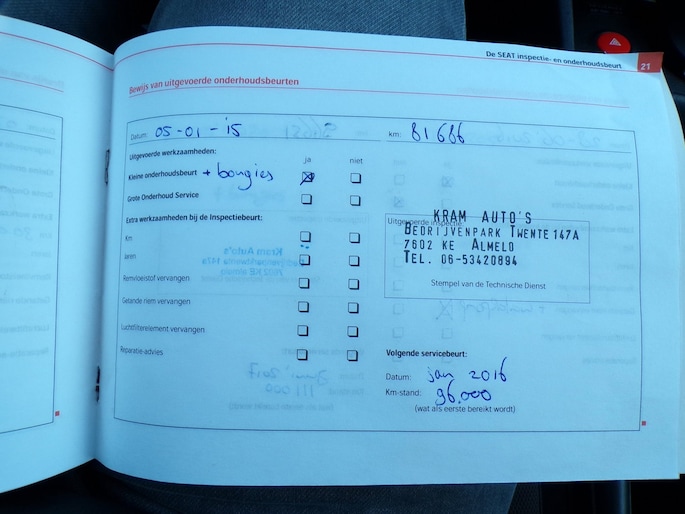 De SEAT inspectie- en onderhoudsbeurt 21
Bewijs van uitgevoerde onderhoudsbeurten
Datum: 05-01-15 km: 81686
Uitgevoerde werkzaamheden: ja niet
Kleine onderhoudsbeurt + bougies
Grote Onderhoud Service
Extra werkzaamheden bij de Inspectiebeurt:
Km
Jaren
Remvloeistof vervangen
Getande riem vervangen
Luchtfilterelement vervangen
Reparatie-advies
Uitgevoerde inspectie
KRAM AUTO'S
BEDRIJVENPARK TWENTE 147A
7602 KE ALMELO
TEL. 06-53420894
Stempel van de Technische Dienst
Volgende servicebeurt:
Datum: jan 2016
Km-stand: 96.000
(wat als eerste bereikt wordt)